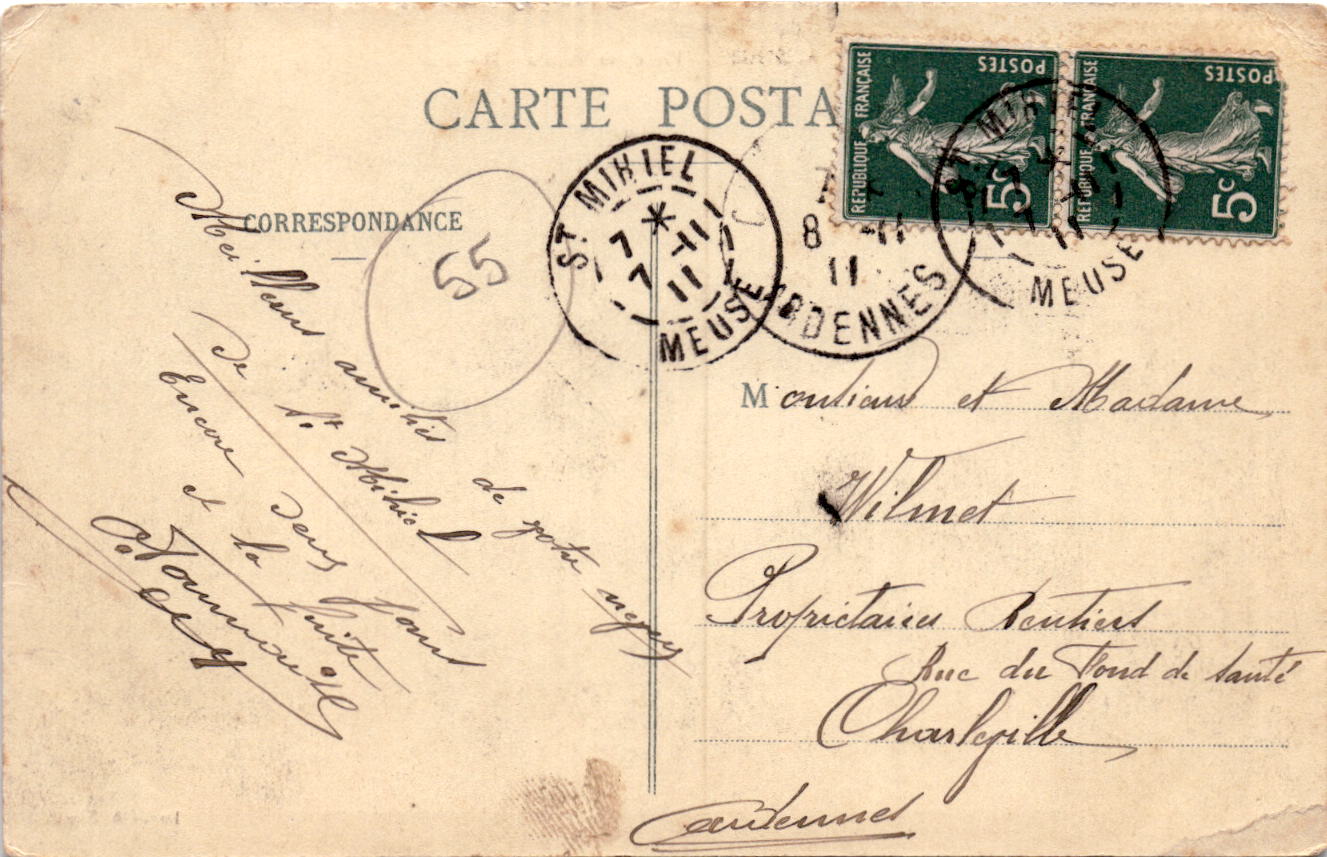 CARTE POSTA
RÉPUBLIQUE FRANÇAISE
POSTES
5c
RÉPUBLIQUE FRANÇAISE
POSTES
5c
ST MIHIEL
*
7 -11
7 11
MEUSE
8 -11
11
ARDENNES
ST MIHIEL
7 -11
7 11
MEUSE
CORRESPONDANCE
55
Meilleurs amitiés de votre neveu
De St Mihiel
Encore deux jours
et la fuite
Monsieur et Madame
Wilmet
Propriétaires Rentiers
Rue du Fond de Santé
Charleville
Ardennes